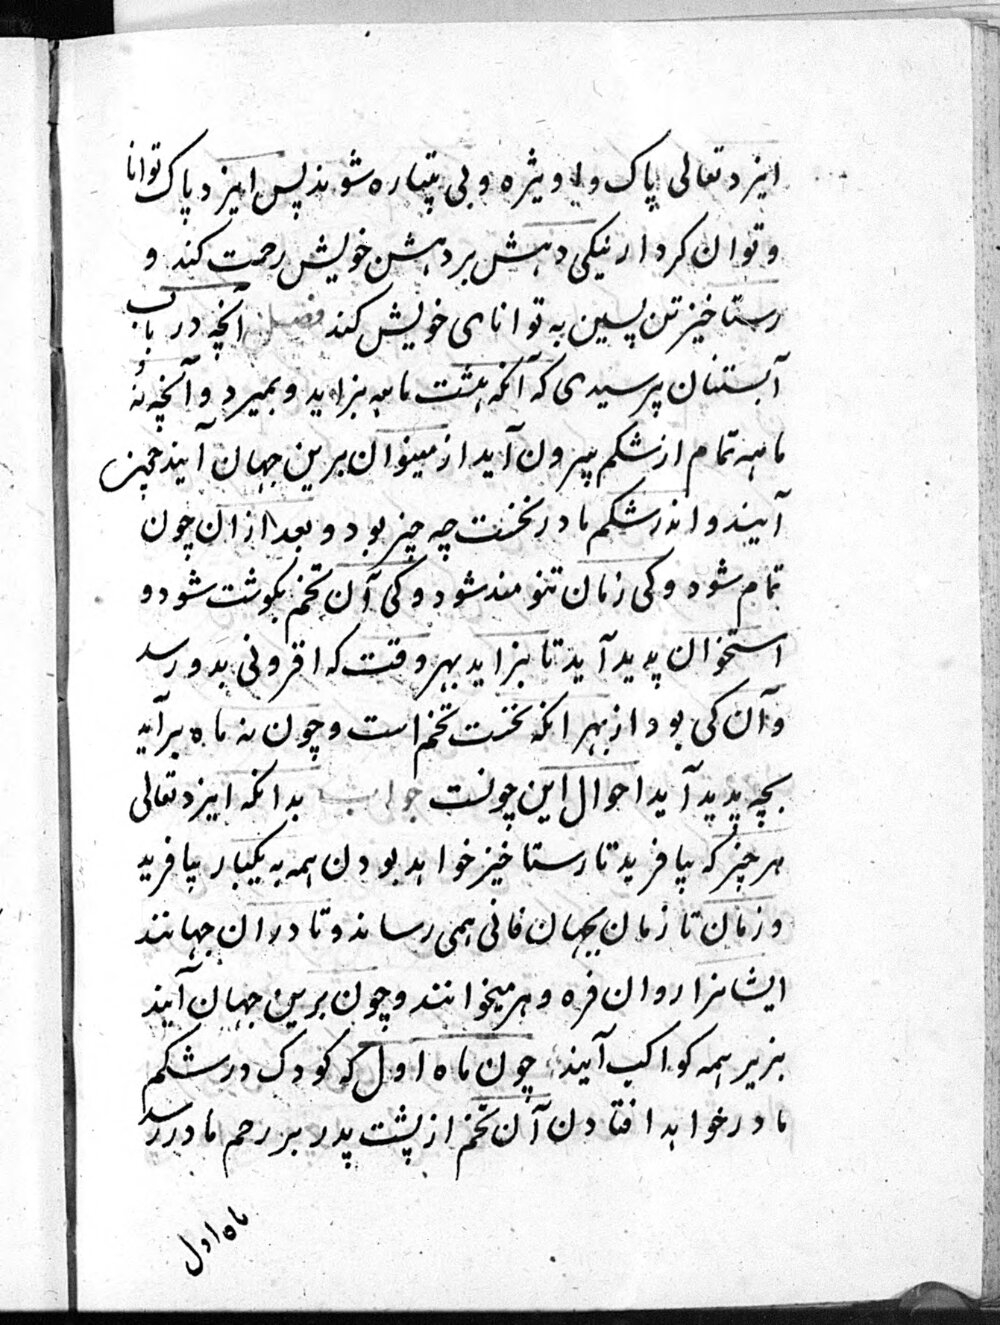 ایزد تعالی پاک و اویژه و بی پتیاره شوند پس ایزد پاک توانا
و توان کردار نیکی دهش بر دهشن خویش رحمت کند و
رستاخیز تن پسین به توانای خویش کند فصل آنچه در باب
آبستنان پرسیدی که آنکه هشت ماهه بزاید و بمیرد و آنچه نُه
ماهه تمام از شکم بیرون آید از مینوان برین جهان آیند چهر
آیند و اندر شکم مادر نخست چه چیز بود و بعد از ان چون
تمام شود و کی زمان تنومند شود و کی آن تخم بکوشت شود و
استخوان پدید آید تا بزاید بهر وقت که افزونی بدو رسد
و آن کی بود از بهر انکه نخست تخم است و چون نه ماه برآید
بچه پدید آید احوال این چونست جواب بدانکه ایزد تعالی
هر چیز که بیافرید تا رستاخیز خواهد بودن همه به یکبار بیافرید
و زمان تا زمان بجهان فانی همی رساند و تا در ان جهانند
ایشانرا روان فره و هر میخوانند و چون برین جهان آیند
بزیر همه کواکب آیند چون ماه اول که کودک در شکم
مادر خواهد افتادن آن تخم از پشت پدر بر رحم مادر رسد
ماه اول